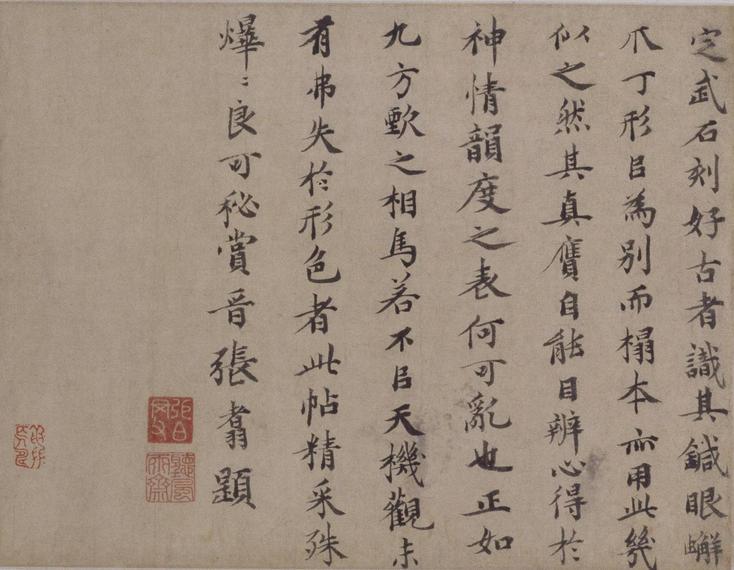 定武石刻好古者識其鍼眼蠏
爪丁形㠯為別而榻本亦用此幾
似之然其真贗自能目辨心得於
神情韻度之表何可亂也正如
九方歅之相馬若不㠯天機觀未
有弗失於形色者此帖精采殊
燁〻良可秘賞晉張翥題